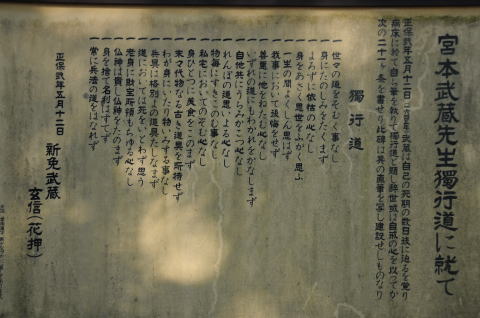 宮本武蔵先生獨行道に就て
正保貮年五月十二日武蔵は自己の死期の数日後に迫るを覚り
病床に於て自ら筆を執りて獨行道と題し辞世或は自戒の心を以ってか
次の二十一ケ条を書せり此碑は其の直筆を写し建設せしものなり
獨行道
一 世々の道をそむく事なし
一 身にたのしみをたくまず
一 よろずに依怙の心なし
一 身をあさく思世をふかく思ふ
一 一生の間よくしん思はず
一 我事において後悔をせず
一 善悪に他をねたむ心なし
一 いずれの道にもわかれをかなしまず
一 自他共にうらみかこつ心なし
一 れんぼの道思ひよる心なし
一 物毎にすきこのむ事なし
一 私宅においてのぞむ心なし
一 身ひとつに美食をこのまず
一 末々代物なる古き道具を所持せず
一 わが身にいたり物いみする事なし
一 兵具は格別よの道具たしなまず
一 道においては死をいとわず思う
一 老身に財宝所領もちゆる心なし
一 佛神は貴し佛神をたのまず
一 身を捨て名利はすてず
一 常に兵法の道をはなれず
正保貮年五月十二日
新免武蔵
玄信(花押)